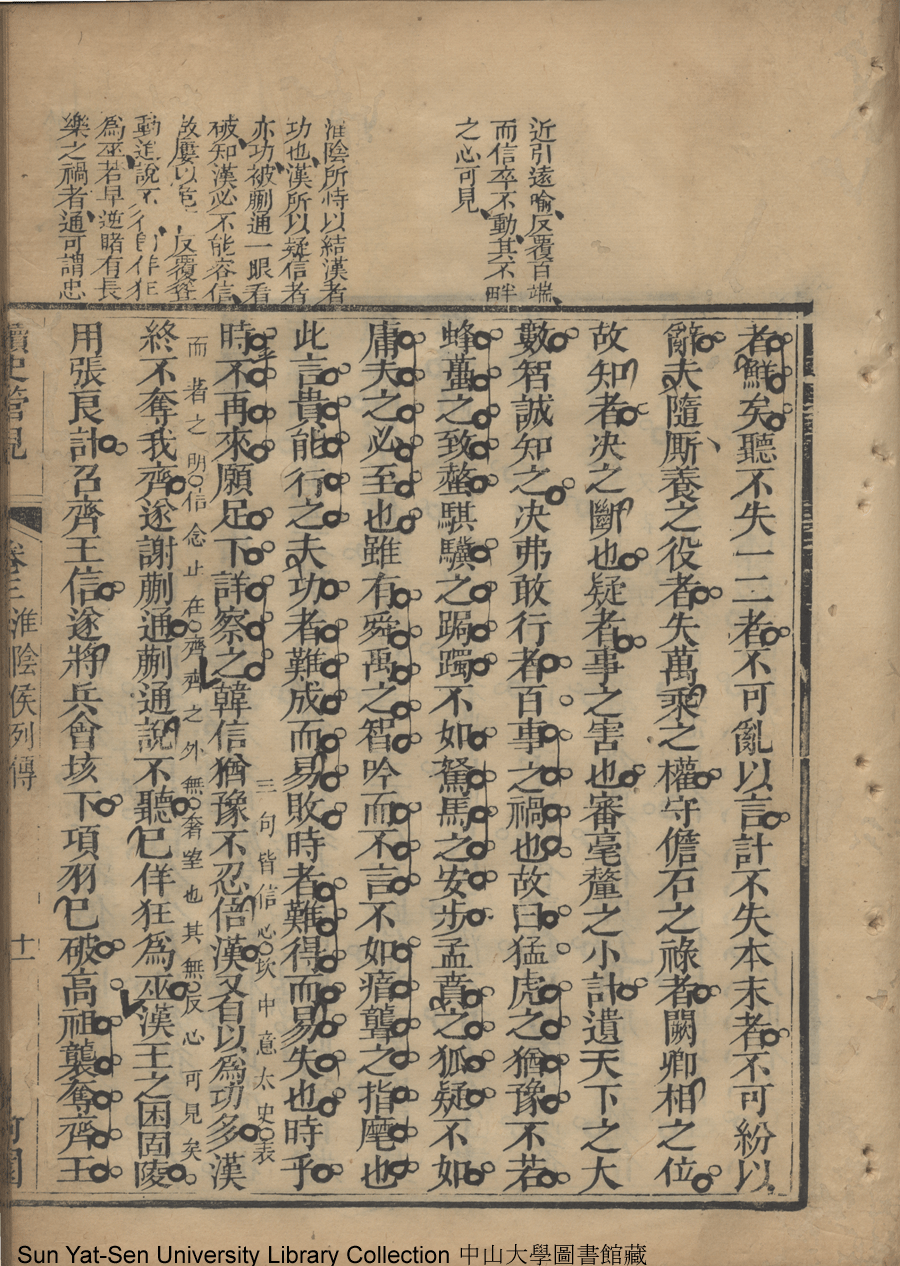 近引遠喻反覆百端
而信卒不動其不畔
之心可見
淮陰所恃以結漢者
功也漢所以疑信者
亦功被蒯通一眼看
破知漢必不能容信
故屢以危 反覆
動進說不 佯狂
為巫若早逆睹有長
樂之禍者通可謂忠
者鮮矣聽不失一二者不可亂以言計不失本末者不可紛以
辭夫隨厮養之役者失萬乘之權守儋石之祿者闕卿相之位
故知者决之斷也疑者事之害也審毫釐之小計遺天下之大
數智誠知之决弗敢行者百事之禍也故曰猛虎之猶豫不若
蜂蠆之致螫騏驥之跼躅不如駑馬之安步孟賁之狐疑不如
庸夫之必至也雖有舜禹之智吟而不言不如瘖聾之指麾也
此言貴能行之夫功者難成而易敗時者難得而易失也時乎
三句皆信心坎中意太史表
時不再來願足下詳察之韓信猶豫不忍倍漢又自以為功多漢
而著之明信念止在齊齊之外無奢望也其無反心可見矣
終不奪我齊遂謝蒯通蒯通說不聽巳佯狂為巫漢王之困固陵
用張良計召齊王信遂將兵會垓下項羽巳破高祖襲奪齊王
讀史管見
卷三淮陰侯列傳
十一